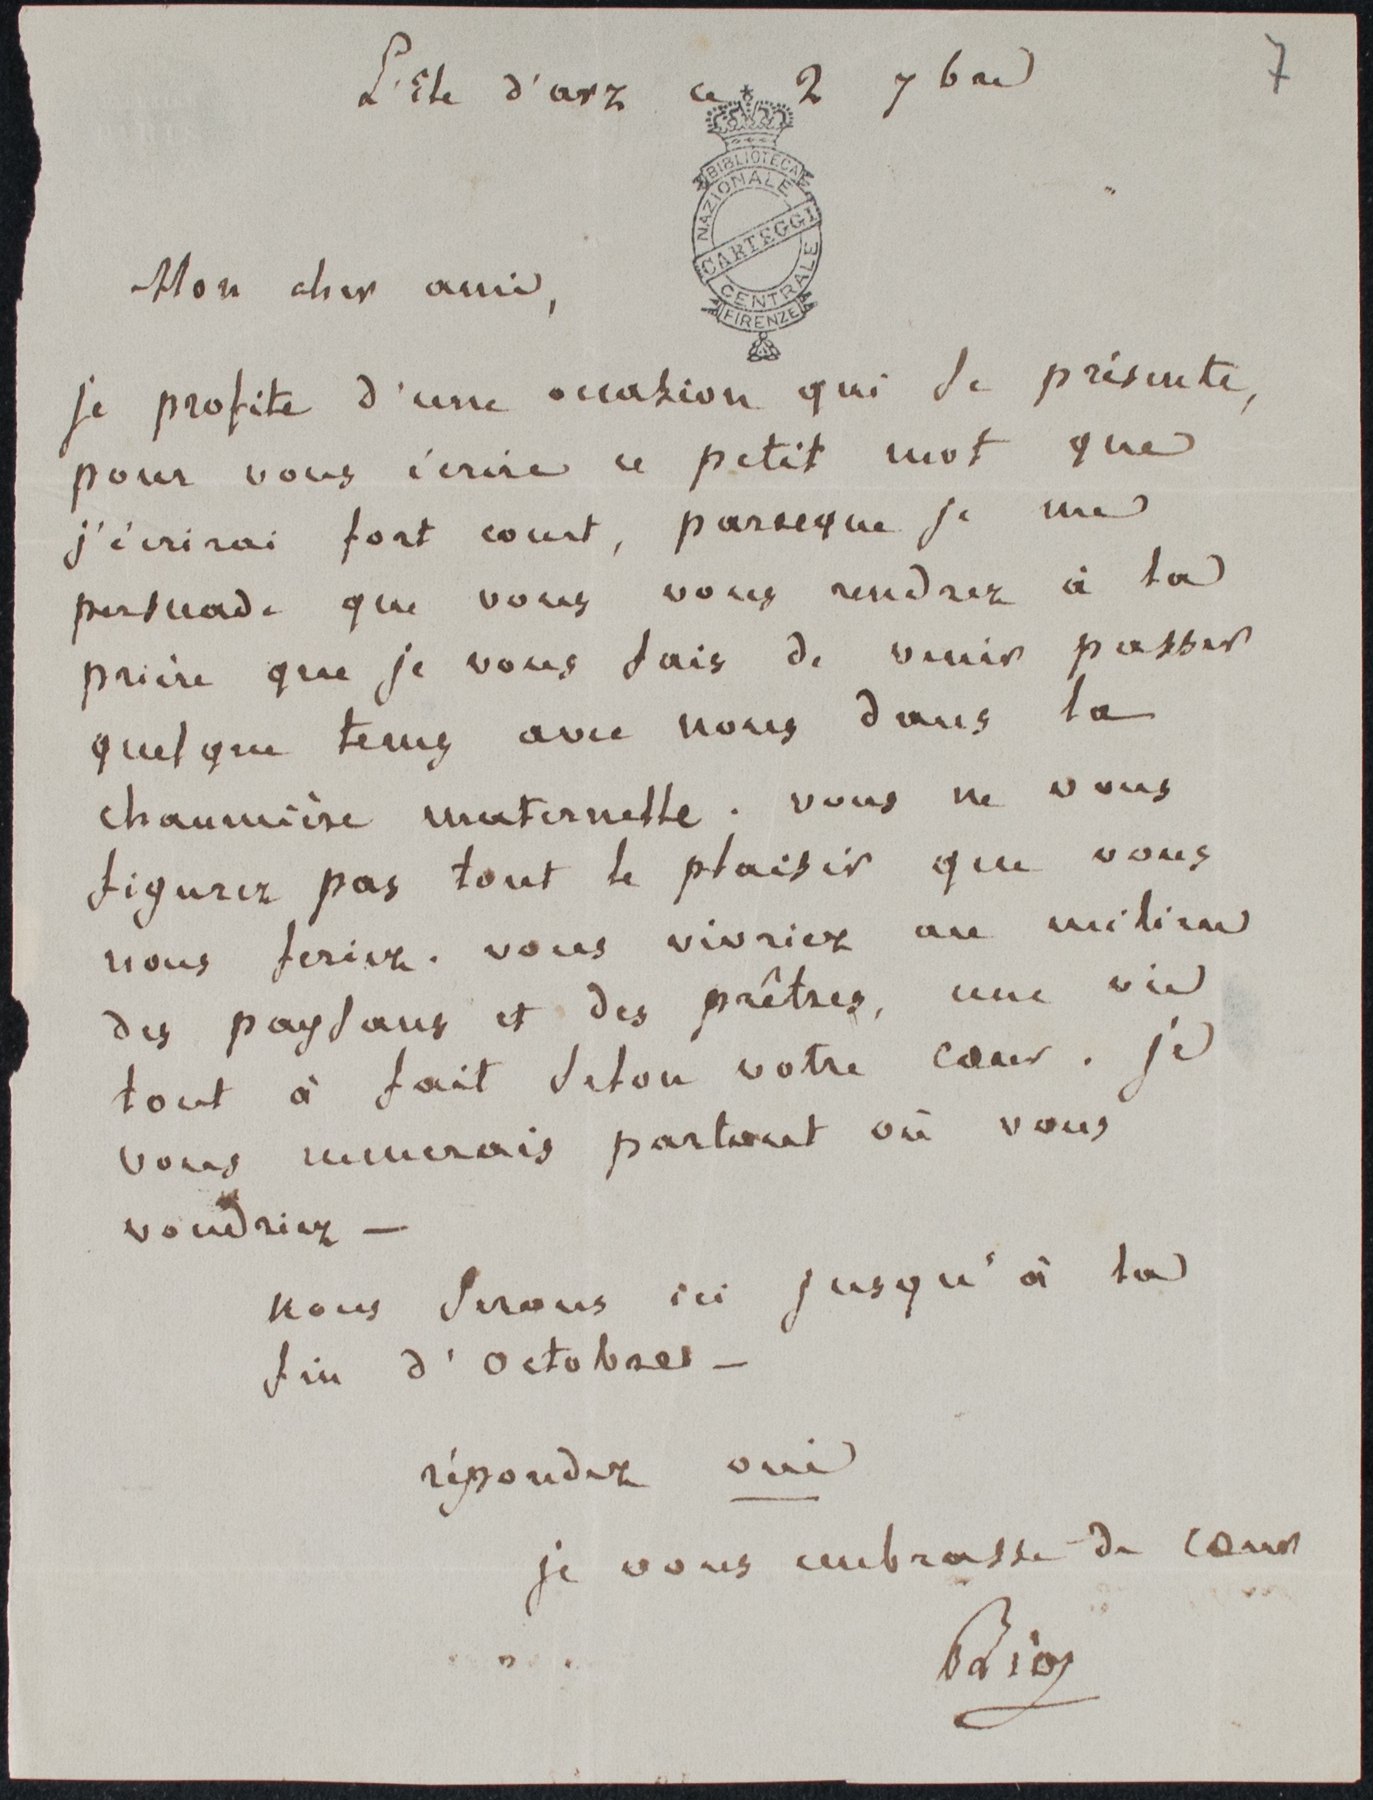 L'ile d'arz ce 2 7bre
7
BIBLIOTECA
NAZIONALE
CARTEGGI
CENTRALE
FIRENZE
Mon cher ami,
je profite d'une occasion qui se présente,
pour vous écrire ce petit mot que
j'écrirai fort court, parseque je me
persuade que vous vous rendrez à la
prière que je vous fais de venir passer
quelque tems avec nous dans la
chaumière maternelle. vous ne vous
figurez pas tout le plaisir que vous
nous feriez. vous vivriez au milieu
des paysans et des prêtres, une vie
tout à fait selon votre cœur. je
vous menerais partout où vous
voudriez —
nous serons ici jusqu'à la
fin d'Octobre —
répondez oui
je vous embrasse de cœur
Rio